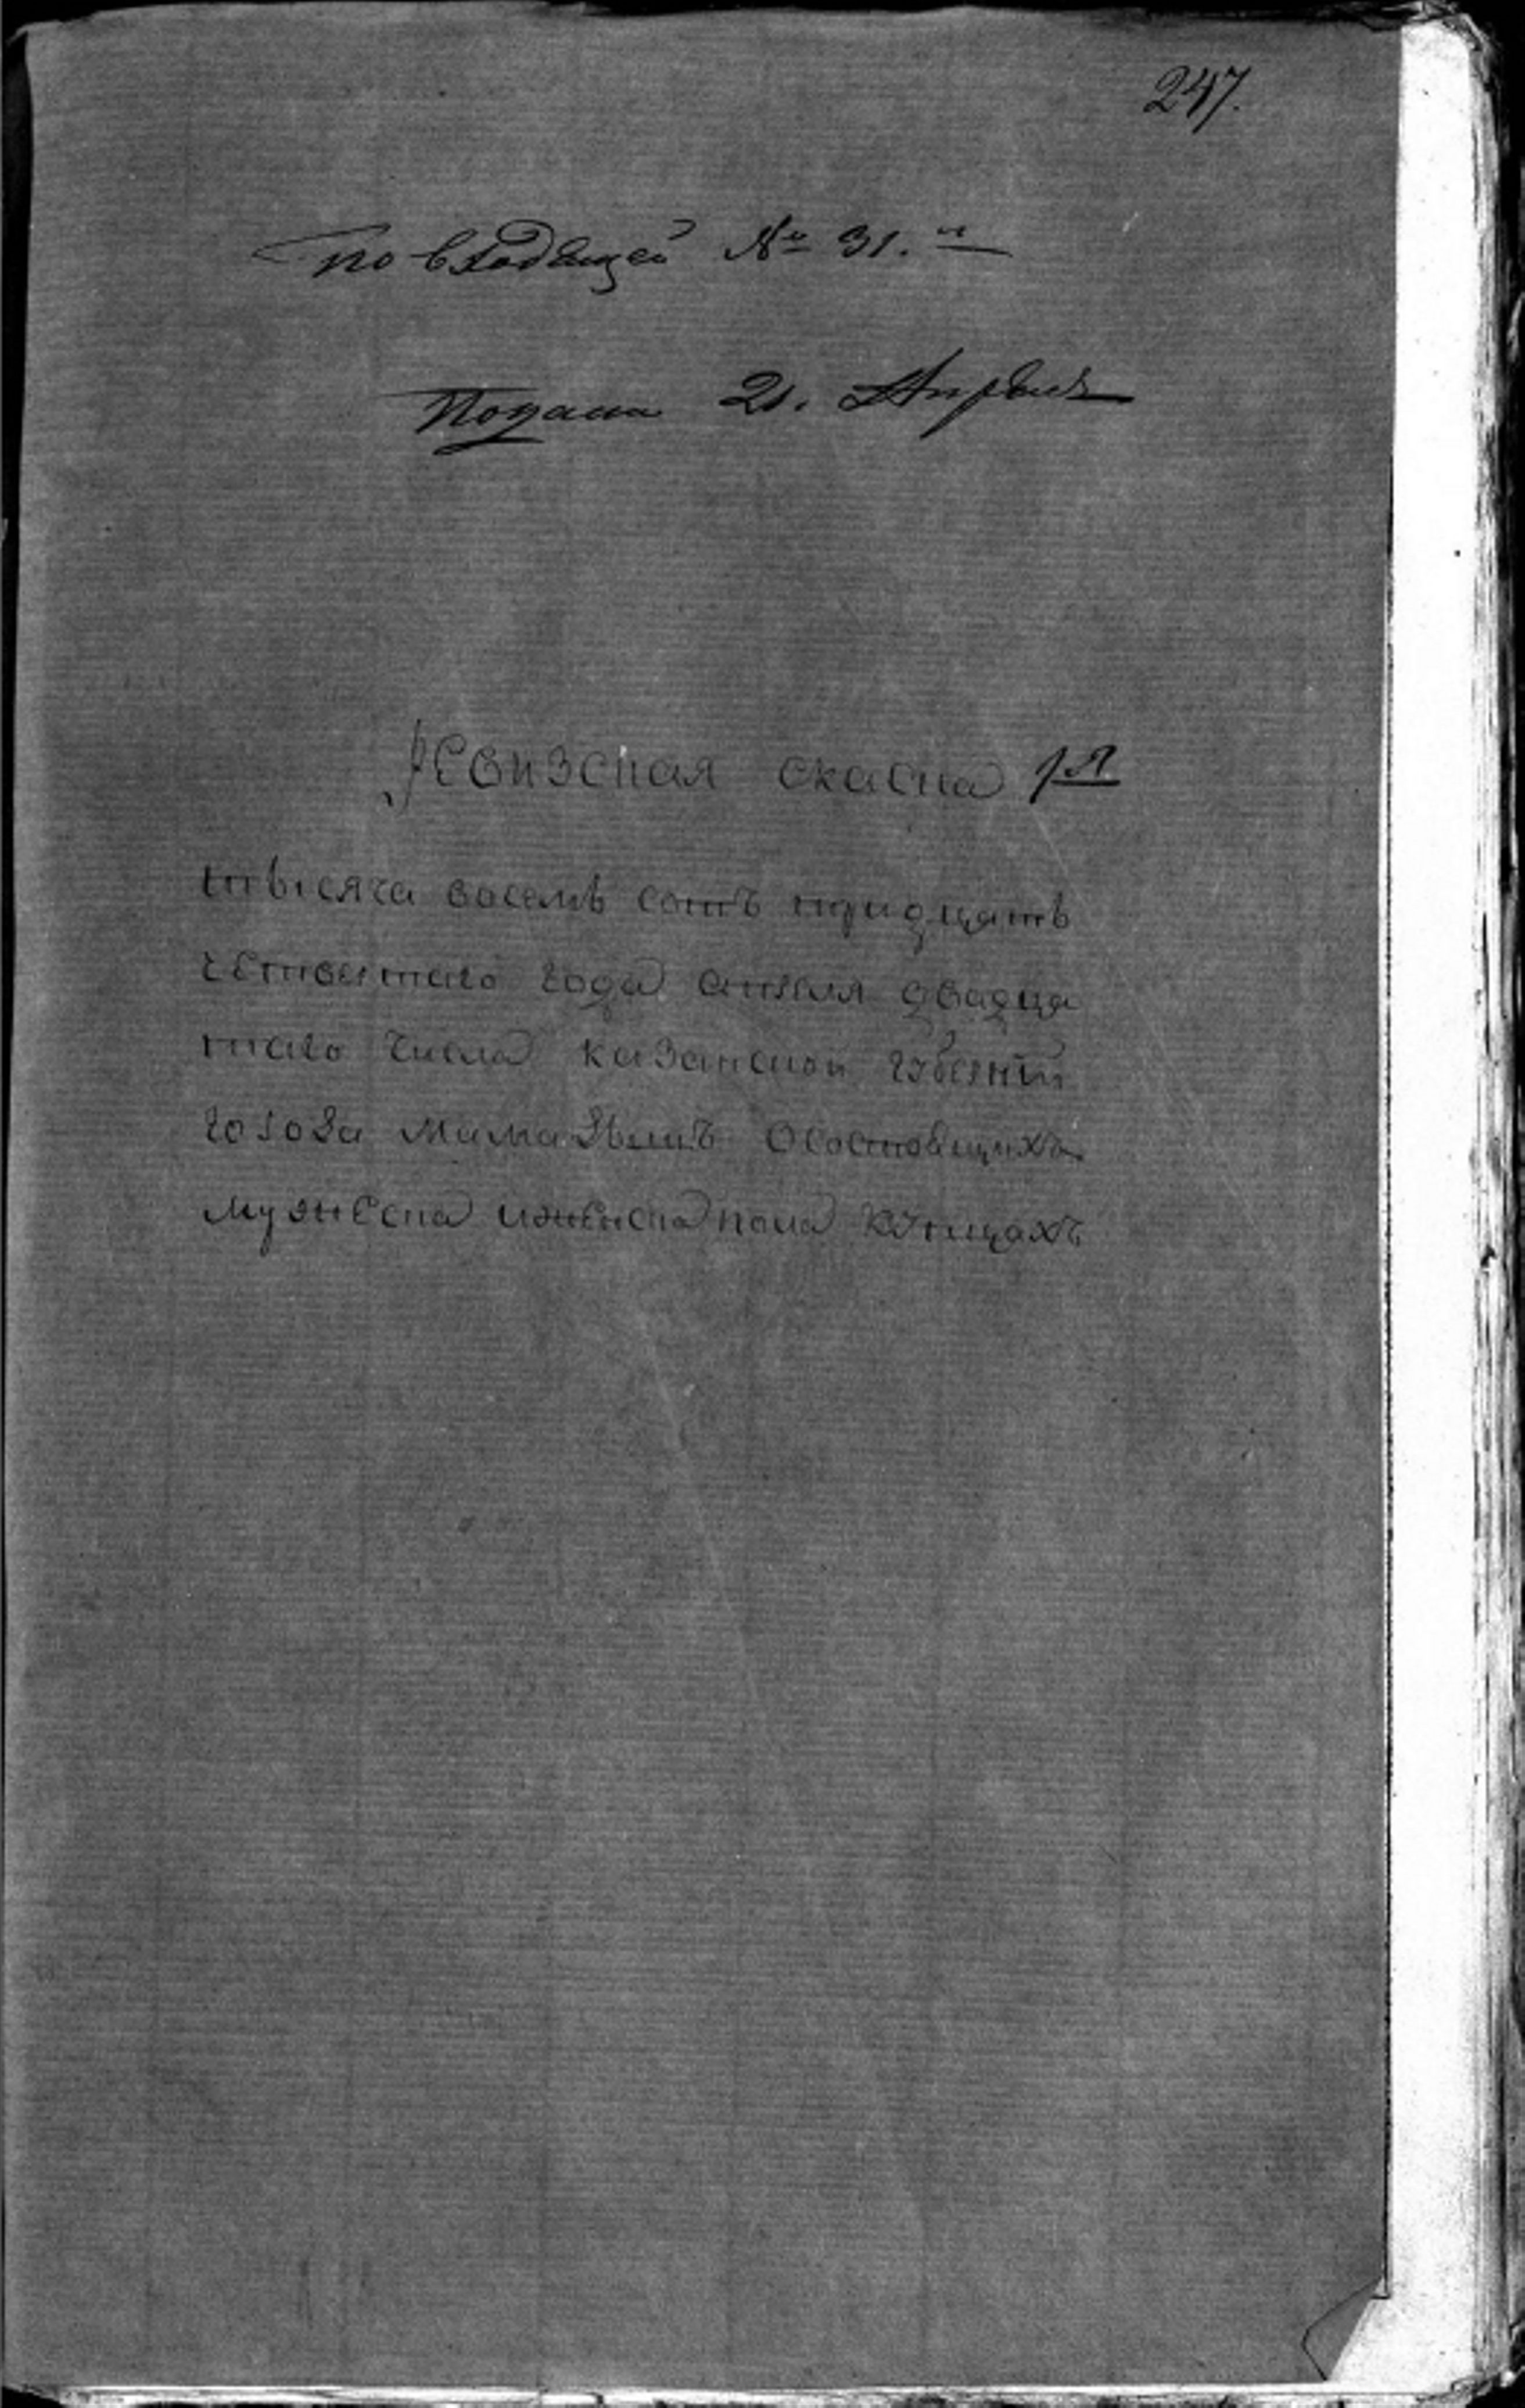 247.
по входящей № 31.й
Подана 21. Апреля
Ревизская скаска 1я
тысяча восемь сотъ тридцать
четвертаго года апреля двадца
таго числа казанской губернiи
города Мамадышъ Осостоящихъ
мужеска иженска пола купцахъ